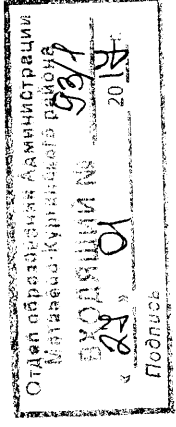 Отдел образования Администрации
Матвеево-Курганского района
ВХОДЯЩИЙ № 93/1
« 28 » 01 2019 г.
Подпись